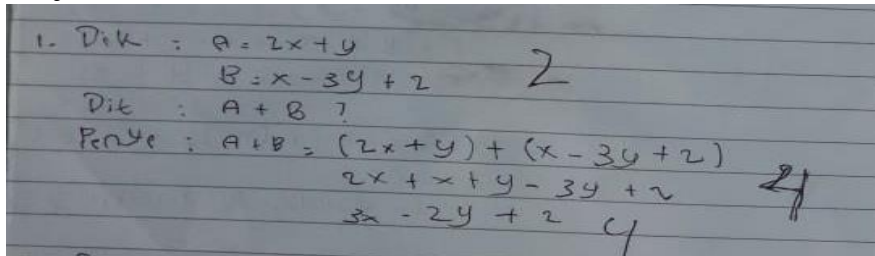 1. Dik : A = 2x + y
B = x - 3y + 2 2
Dit : A + B ?
Penye : A + B = (2x + y) + (x - 3y + 2)
2x + x + y - 3y + 2 4
3x - 2y + 2 4